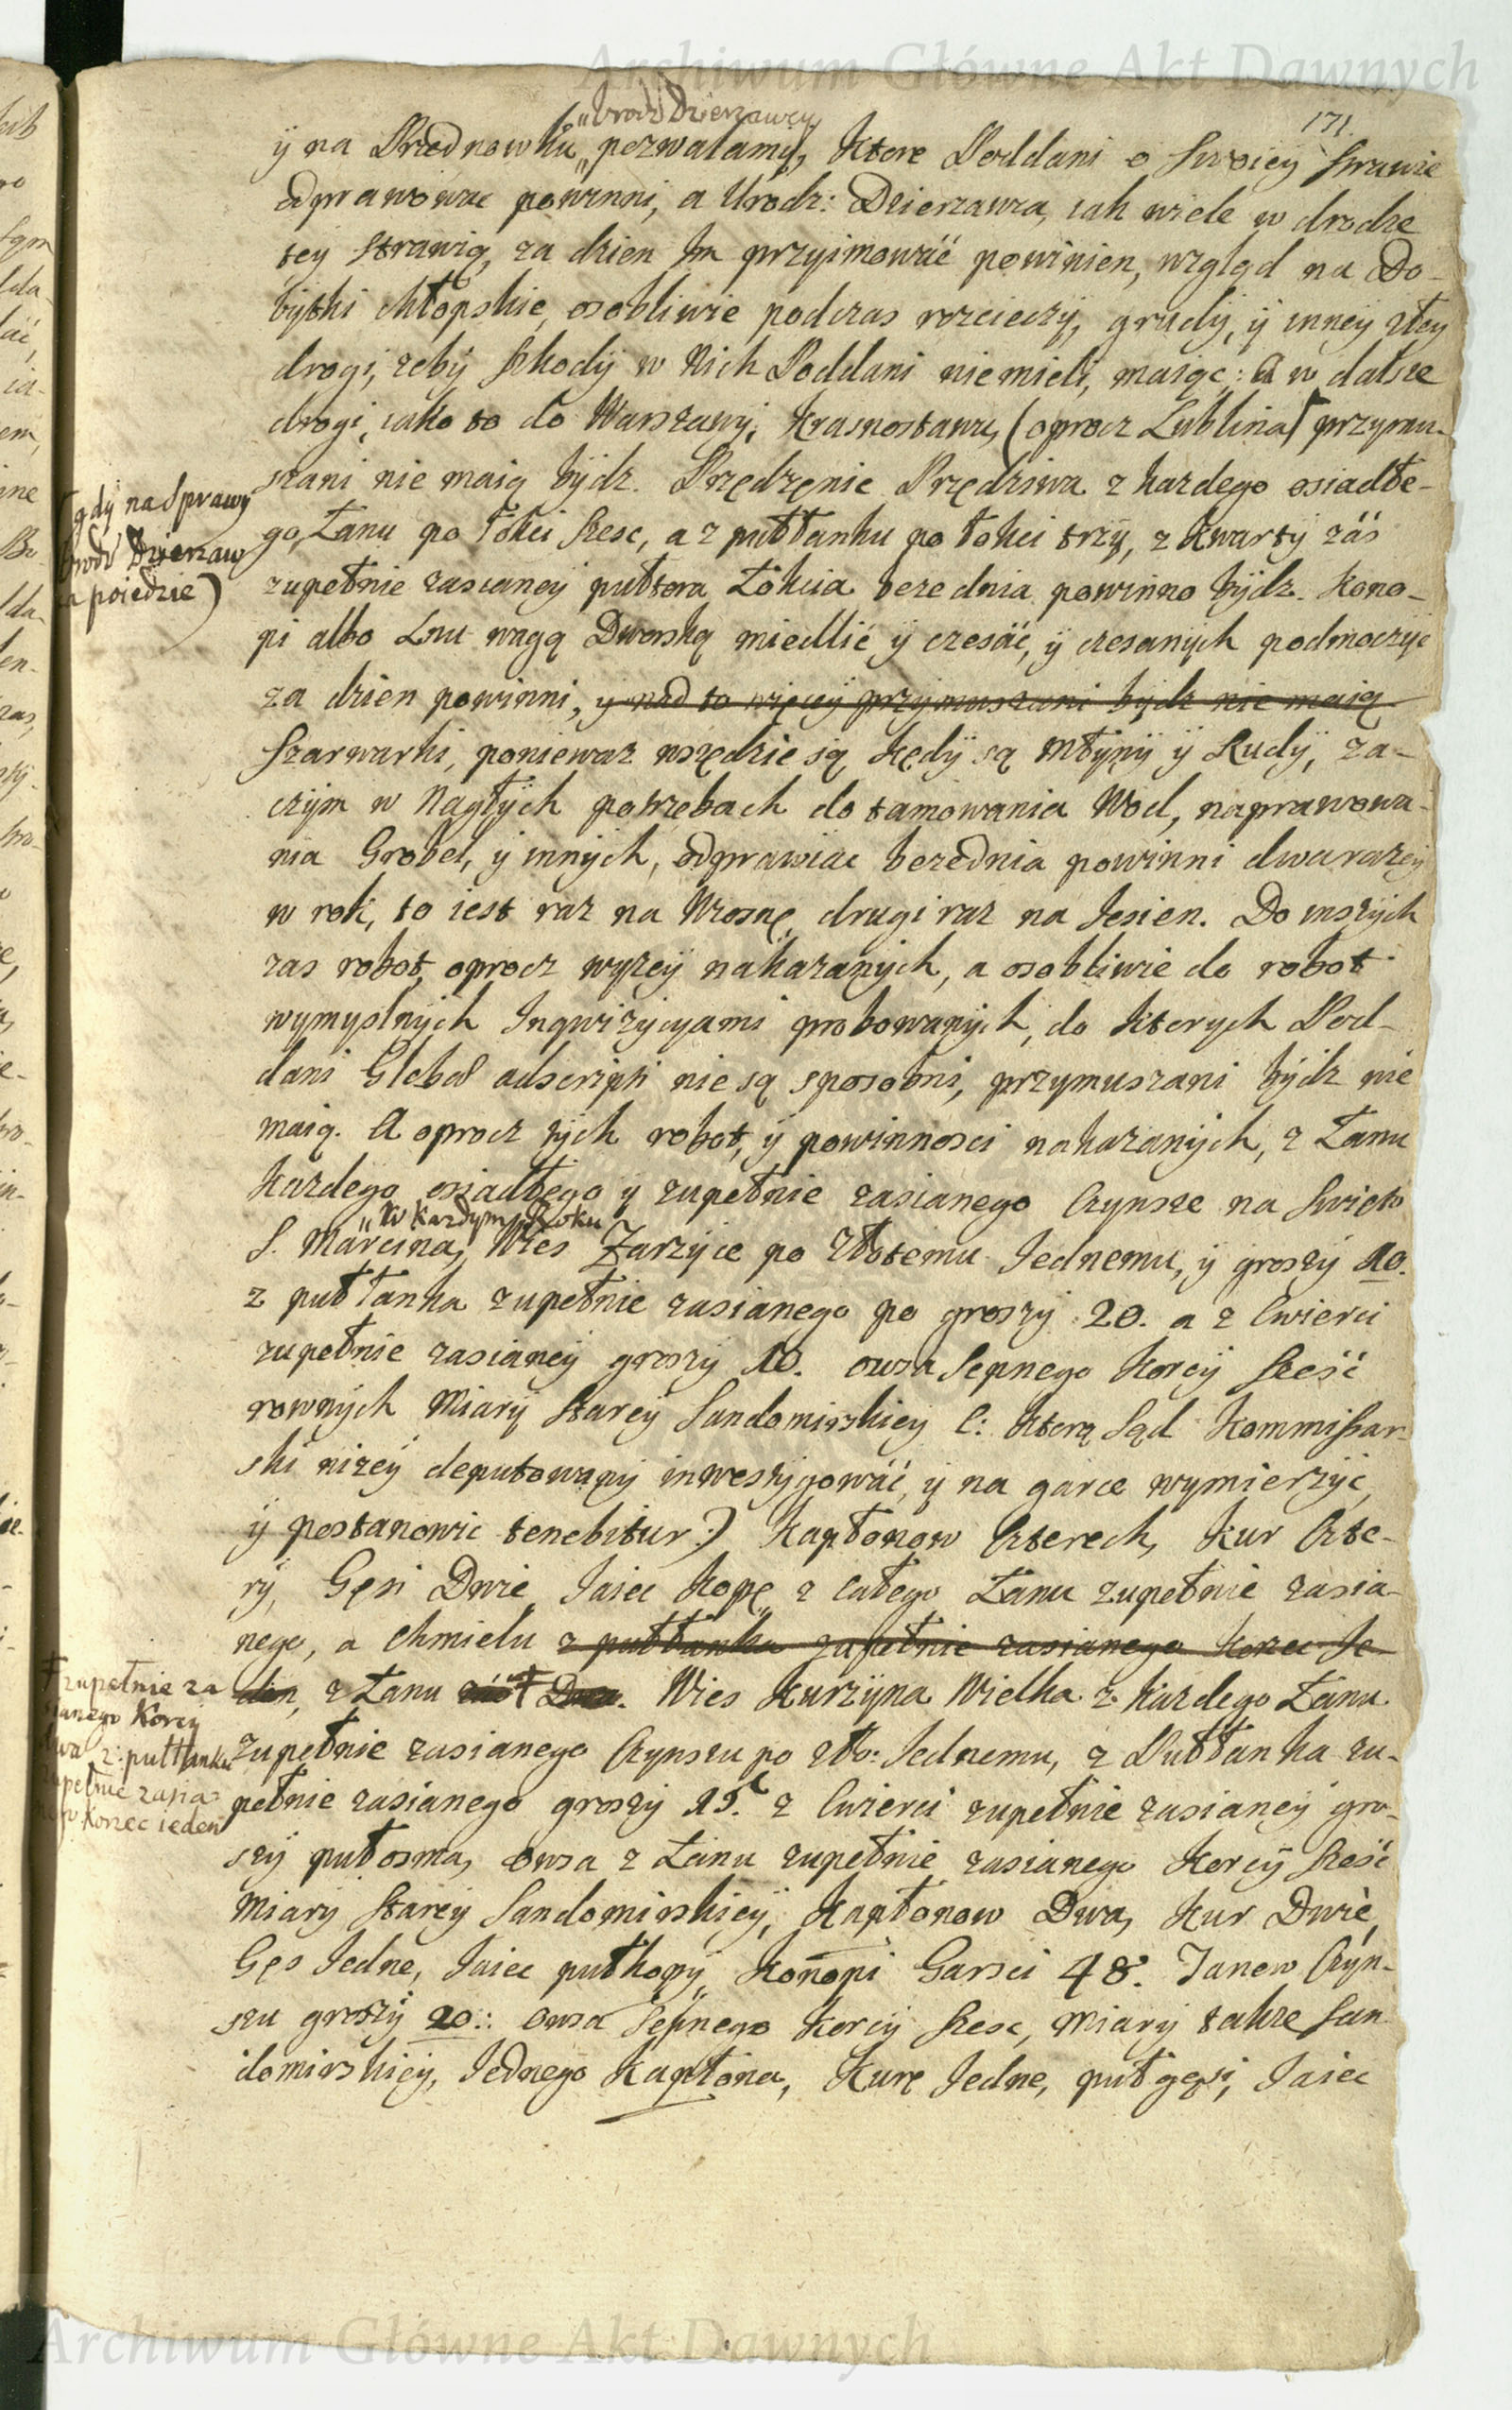 Archiwum Główne Akt Dawnych
171.
"Urodź Dzierzawcy
ÿ na Przednowku" pozwalamÿ, Ktore Poddani o Swoiey Strawie
odprawowac powinni, a Urodz: Dzierzawca, iak wiele w drodze
tey Strawią, za dzien Im przyimowáć powinien, wzgląd na Do-
bÿtki chłopskie, osobliwie podczas rozcieczÿ, grudÿ, ÿ inneÿ złey
drogi, zebÿ Szkodÿ w Nich Poddani niemieli, maiąc: A w dalsze
drogi, iako to do Warszawÿ, Krasnostawu, (oprocz Lublina/ przymu-
szani nie maią bÿdz. Przędzenie Przędziwa z kazdego osiadłe-
go, Łanu po łokci Szesc, a z pułłanku po łokci trzÿ, z kwartÿ záś
zupełnie zasianeÿ pułtora Łokcia beze dnia powinno bÿdz. Kono-
pi albo Lnu wagą Dworską miedlić ÿ czesáć, ÿ czesanÿch podmoczÿc
za dzien powinni, y nad to więceÿ przymuszani bÿdz nie maią
Szarwarki, poniewaz wszędzie są, kędÿ są Młÿnÿ ÿ Rudÿ, za-
czÿm w Nagłÿch potrzebach do tamowania Wod, naprawowa-
nia Grobel, ÿ innÿch, odprawiac bezednia powinni dwa razÿ
w rok, to iest raz na Wiosnę, drugi raz na Jesien. Do inszÿch
zas robot, oprocz wyzeÿ nakazanÿch, a osobliwie do robot
wymyslnÿch Inqwizycyami probowanÿch, do Kterych Pod-
dani Glebæ adscripti nie są sposobni, przymuszani bÿdz nie
maią. A oprocz tÿch robot, ÿ powinnosci nakazanÿch, z Łanu
Kazdego osiadłego y zupełnie zasianego Czynsze na Swięto
"W Kazdym Roku
S. Marcina, Wies Zarzÿce po Złotemu Jednemu, ÿ groszÿ 10.
z pułłanka zupełnie zasianego po groszÿ 20. a z Cwierci
zupełnie zasianeÿ groszÿ 10. owsa Sepnego Korcÿ Sześć
rownÿch Miarÿ Stareÿ Sandomirskiey (: Ktorą Sąd Kommissar-
ski nizeÿ deputowanÿ inwestygowáć, ÿ na garce wymierzÿc,
ÿ postanowic tenebitur:) Kapłonow Czterech, Kur Czte-
rÿ, Gęsi Dwie, Jaiec Kopę, z całego Łanu zupełnie zasia-
nego, a Chmielu z pułłanka zupełnie zasianego Korzec Je-
den, z Łanu záś Dwa. Wies Kurzÿna Wielka z Kazdego Łanu
zupełnie zasianego Czynszu po zło: Jednemu, z Pułłanka zu-
pełnie zasianego groszÿ 15. z Cwierci zupełnie zasianeÿ gro-
szÿ pułosma, owsa z Łanu zupełnie zasianego Korcÿ Sześć
Miarÿ Stareÿ Sandomirskieÿ, Kapłonow Dwa, Kur Dwie,
Gęs Jedne, Jaiec pułkopÿ, Konopi Garsci 48. Janow Czÿn-
szu groszÿ 20: owsa Sepnego Korcÿ Szesc, Miarÿ takze San
domirskieÿ, Jednego Kapłona, Kurę Jedne, puł gęsi, Jaiec
gdÿ na Sprawÿ
Urodź Dzierzaw
ca poiedzie)
zupełnie za
sianego Korcÿ
dwa z: pułłanku
zupełnie zasia-
nego Korzec ieden
Archiwum Główne Akt Dawnych